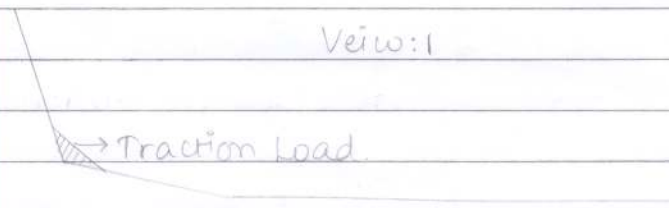 Veiw:1
Traction Load.